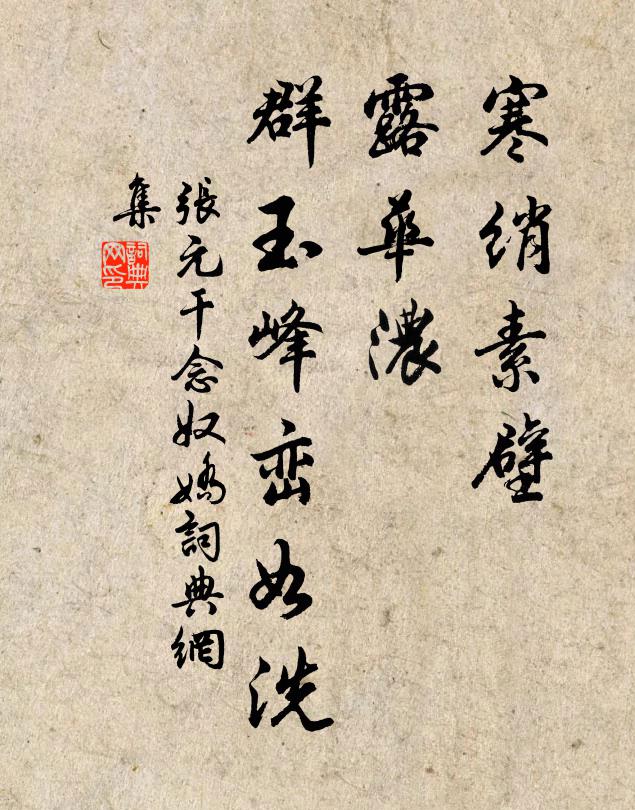 寒綃素壁
露華濃
群玉峰巒如洗
張元干念奴嬌詞典網
集
詞典
网印